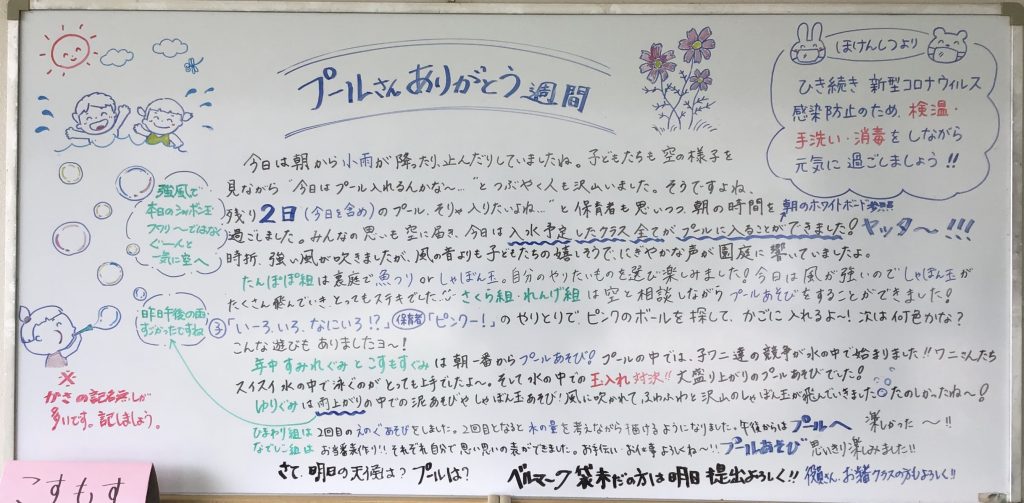 プールさんありがとう週間
ほけんしつより
ひき続き 新型コロナウィルス
感染防止のため、検温・
手洗い・消毒をしながら
元気に過ごしましょう!!
今日は朝から小雨が降ったり、止んだりしていましたね。子どもたちも空の様子を
見ながら "今日はプール入れるんかな〜…"とつぶやく人も沢山いました。そうですよね、
残り2日(今日を含め)のプール、そりゃ入りたいよね…"と保育者も思いつつ、朝の時間を 朝のホワイトボード参照
過ごしました。みんなの思いも空に届き、今日は入水予定したクラス全てがプールに入ることができました!ヤッタ〜!!!
時折、強い風が吹きましたが、風の音よりも子どもたちの嬉しそうで、にぎやかな声が園庭に響いていましたよ。
たんぽぽ組は裏庭で魚つり or しゃぼん玉。自分のやりたいものを選び楽しみました!今日は風が強いのでしゃぼん玉が
たくさん飛んでいき、とってもステキでした。さくら組・れんげ組は空と相談しながらプールあそびをすることができました!
子「いーろ、いろ、なにいろ!?」保育者「ピンクー!」のやりとりで、ピンクのボールを探して、かごに入れるよ〜!次は何色かな?
こんな遊びもありましたヨ〜!
年中すみれぐみとこすもすぐみは朝一番からプールあそび!プールの中では、子ワニ達の競争が水の中で始まりました!!ワニさんたち
スイスイ水の中で泳ぐのがとっても上手でしたよ〜。そして水の中での玉入れ対決!!大盛り上がりのプールあそびでした!
ゆりぐみは雨上がりの中での泥あそびやしゃぼん玉あそび!風に吹かれて、ふわふわと沢山のしゃぼん玉が飛んでいきました たのしかったね〜!
ひまわり組は2回目のえのぐあそびをしました。2回目となると水の量を考えながら描けるようになりました。午後からはプールへ 楽しかった〜!!
なでしこ組はお当番表作り!!それぞれ自分で思い思いの表ができました。お手伝い、お仕事よろしくね〜!!プールあそび 思いっきり楽しみました!!
さて、明日の天候は?プールは?
ベルマーク袋未だの方は明日提出よろしく!! 役員さん、お当番クラスの方もよろしく!!
強風で
本日のシャボン玉
フワリ〜ではなく
ぐーんと
一気に空へ
昨日午後の雨
すごかったですね
※
かさの記名無しが
多いです。記しましょう。
こすもす